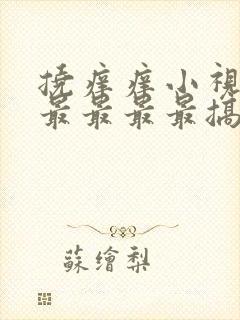 撓癢癢小視
最最最最搞
蘇繪梨